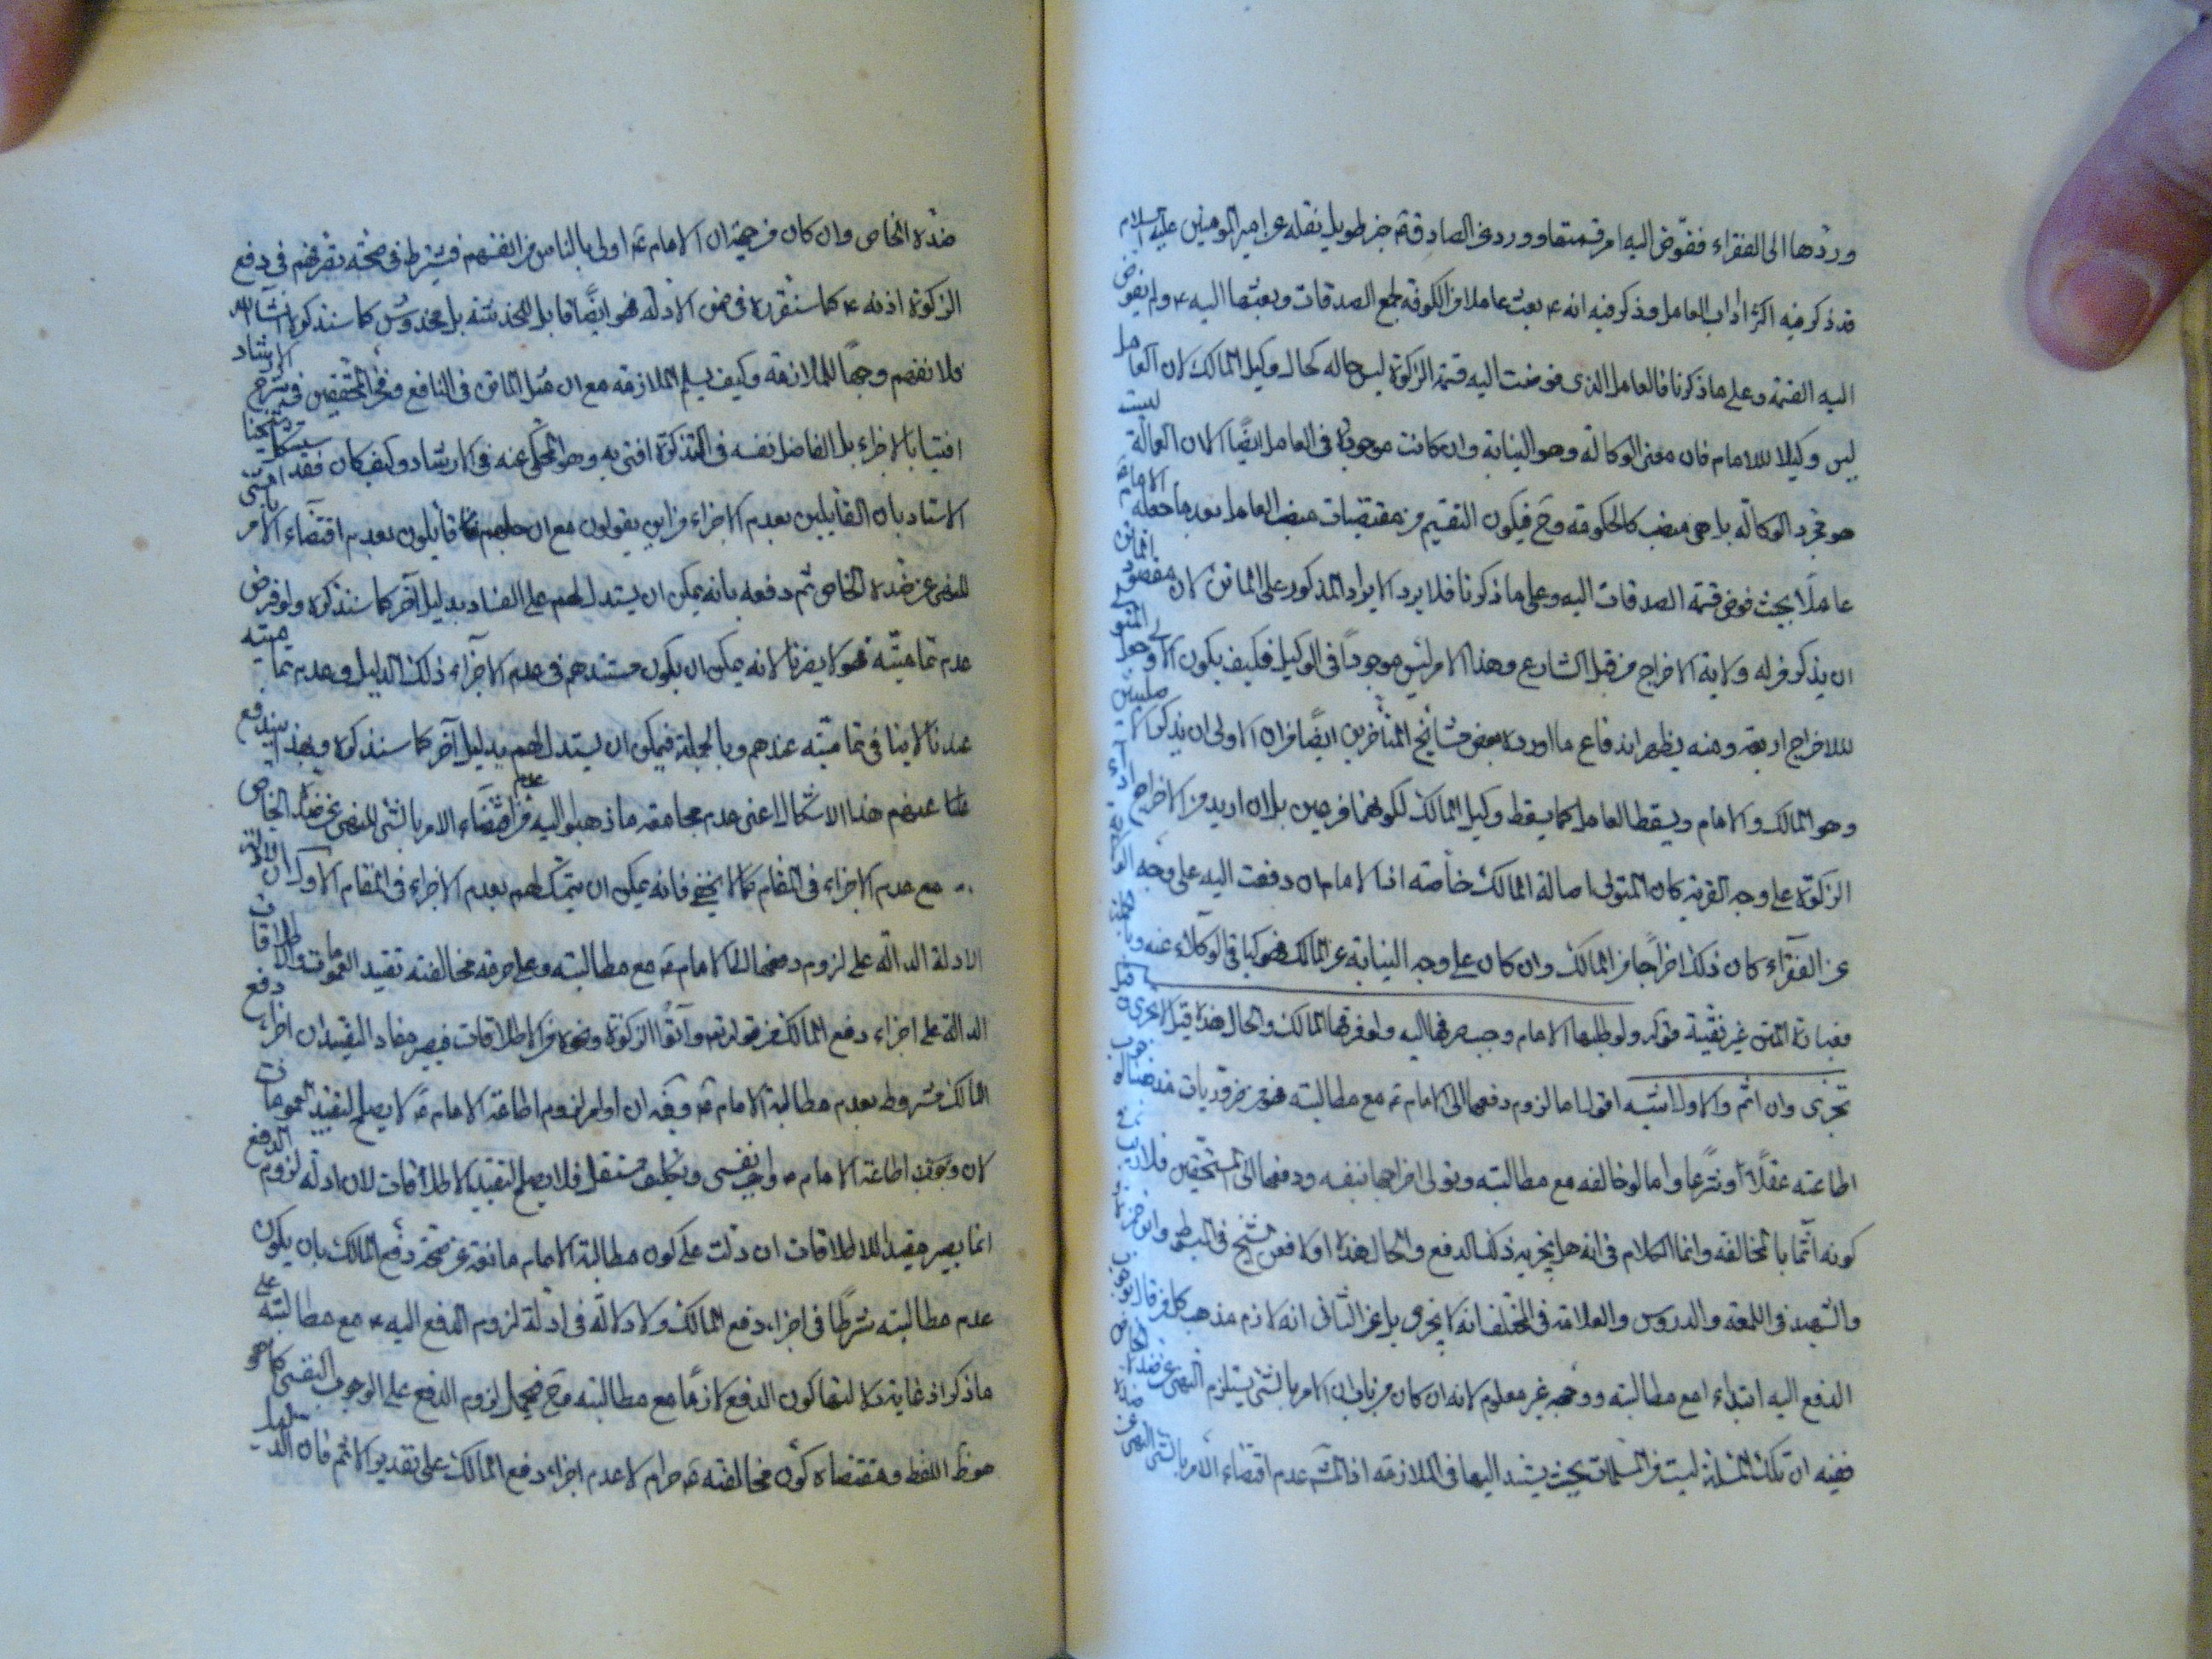 وردّها الى الفقراء ففوّض اليه امر قسمتها وورد عن الصادق ع خبر طويل نقله عن امير المومنين عليه السلام
قد ذكر فيه اكثر اداب العامل وذكر فيه انه ع بعث عاملا من الكوفه لجمع الصدقات وبعثها اليه ع ولم يفوض
اليه القسمة وعلى ما ذكرنا فالعامل الذى فوضت اليه قسمة الزكوة ليس حاله كحال وكيل المالك لان العامل
ليس وكيلا للامام فان معنى الوكالة وهو النيابة وان كانت موجودة فى العامل ايضًا الا ان العمالة ليست
هو مجرد الوكالة بل هى منصب كالحكومة وح فيكون التقسيم من مقتضيات منصب العامل بعد ما جعله الامام ع
عاملًا بحيث فوض قسمة الصدقات اليه وعلى ما ذكرنا فلا يرد الايراد المذكور على الماتن لان مقصود الماتن
ان يذكر من له ولاية الاخراج من قبل الشارع وهذا الامر ليس موجودًا فى الوكيل فكيف يكون المتولى
للاخراج اربعة ومنه يظهر اندفاع ما اورده بعض مشائخ المتأخرين ايضًا من ان الاولى ان يذكر
وهو المالك والامام ويسقط العامل كما يسقط وكيل المالك لكونهما فرعين بل ان اريد من الاخراج
الزكوة على وجه القربة كان المتولى اصالة المالك خاصّة اذ الامام ان دفعت اليه على وجه
عن الفقرآء كان ذلك اخراجًا من المالك وان كان على وجه النيابة عن المالك فهو كباقى الوكلاء عنه
فعبارة المتن غير نقيّة قوله ولو طلبها الامام وجب صرفها اليه ولو فرقها المالك والحال هذه قيل لا يجزى
تجزى وان اثم والاول اشبه اقول اما لزوم دفعها الى الامام ع مع مطالبته فهو من ضروريات مذهبنا
اطاعته عقلًا وشرعا واما لو خالفه مع مطالبته وتولى اخراجها بنفسه ودفعها الى المستحقين فلا ريب فى
كونه آثما بالمخالفة وانما الكلام فى انه هل يجزيه ذلك الدفع والحال هذه اولا فعن الشيخ فى المبسوط وابن حمزة
والشهيد فى اللمعة والدروس والعلامة فى المختلف انه لا يجزى بل عن الثانى انه لازم مذهب كل من قال بوجوب
الدفع اليه ابتداء او مع مطالبته ووجهه غير معلوم لانه ان كان من باب ان الامر بالشئ يستلزم النهى عن ضده الخاص
ففيه ان تلك المسئلة ليست من المسلمات بحيث يستند اليها فى الملازمة اذ المشهور عدم اقتضاء الأمر بالشئ النهى عن ضده
ضدّه الخاص وان كان من جهة ان الامام ع اولى بالناس من انفسهم فيشترط فى صحّة تصرفهم فى دفع
الزكوة اذنه ع كما سنقرره فى ضمن الادلة فهو ايضًا قابل للخدشة بل مخدوش كما سنذكره انشآء الله
فلا نفهم وجهًا للملازمة وكيف يسلم الملازمة مع ان مثل الماتن فى النافع وفخر المحققين فى شرح الارشاد
افتيا بالاجزاء بل الفاضل نفسه فى التذكرة افتى به وهو المحكى عنه فى الارشاد وكيف كان فقد
الاستاد بان القائلين بعدم الاجزاء من اين يقولون مع ان جلهم قائلون بعدم اقتضآء الامر
للنهى عن ضده الخاص ثم دفعه بانه يمكن ان يستدل لهم على الفساد بدليل آخر كما سنذكره ولو فرض
عدم تماميّته فهو لا يضرنا لانه يمكن ان يكون مستندهم فى عدم الاجزآء ذلك الدليل وعدم تماميته
عندنا لا ينافى تماميّته عندهم وبالجملة فيمكن ان يستدل لهم بدليل آخر كما سنذكره وبهذا يندفع
عنهم هذا الاشكال اعنى عدم مجامعة ما ذهبوا اليه من عدم اقتضآء الامر بالشئ للنهى عن ضده الخاص
مع عدم الاجزاء فى المقام كما لا يخفى فانه يمكن ان يتمسّك لهم بعدم الاجزاء فى المقام الاول ان
الادلة الدالة على لزوم دفعها الى الامام ع مع مطالبته وعلى حرمة مخالفته تقيد العمومات والاطلاقات
الدالة على اجزاء دفع المالك من قوله تع وآتوا الزكوة ونحوه من الاطلاقات فيصير مفاد التقييد ان اجزاء دفع
المالك مشروط بعدم مطالبة الامام ع وفيه ان اوامر لزوم اطاعة الامام ع لا يصلح لتقييد العمومات
لان وجوب اطاعة الامام ع واجب نفسى وتكليف مستقل فلا يصلح لتقييد الاطلاقات لان ادلة لزوم الدفع
انما يصير مقيدا للاطلاقات ان دلت على كون مطالبة الامام مانعة عن صحّة دفع المالك بان يكون
عدم مطالبته شرطًا فى اجزاء دفع المالك ولا دلالة فى ادلة لزوم الدفع اليه ع مع مطالبته على
ما ذكر اذ غاية دلالتها كون الدفع لازمًا مع مطالبته وح فيحمل لزوم الدفع على الوجوب النفسى كما هو
هو ظ اللفظ ومقتضاه كون مخالفته ع حرام لا عدم اجزاء دفع المالك على تقدير الاثم فان الدليل